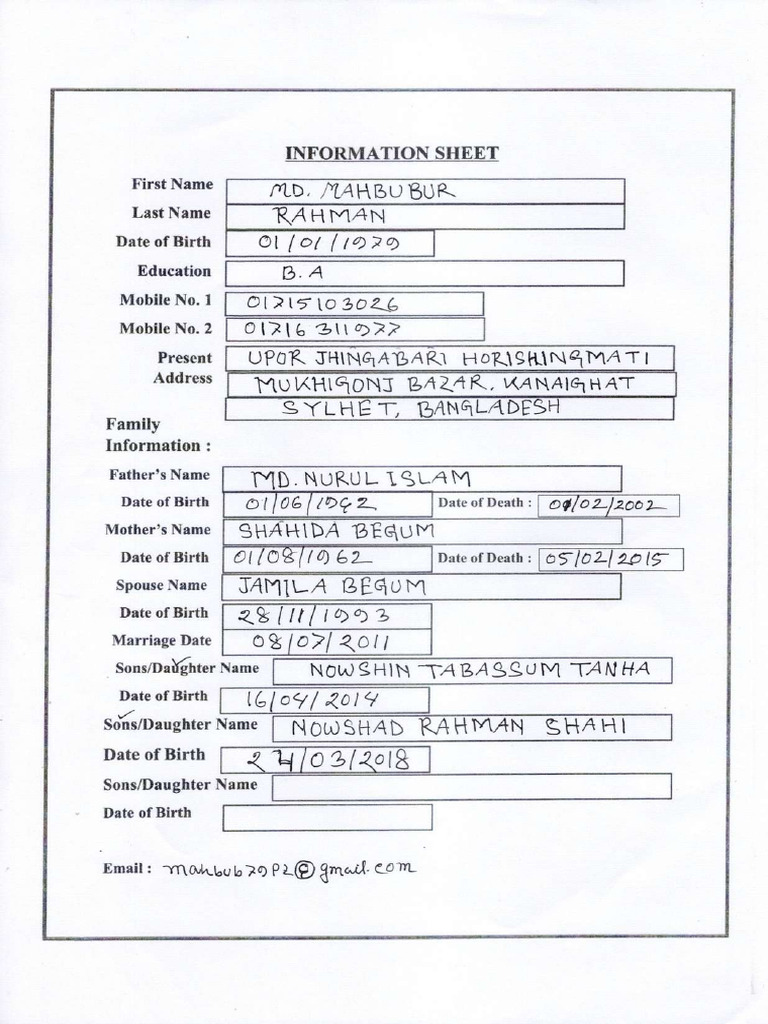 INFORMATION SHEET
First Name MD. MAHBUBUR
Last Name RAHMAN
Date of Birth 01/01/1979
Education B.A
Mobile No. 1 01715103026
Mobile No. 2 01716311977
Present UPOR JHINGABARI HORISHINGMATI
Address MUKHIGONJ BAZAR, KANAIGHAT
SYLHET, BANGLADESH
Family
Information :
Father's Name MD. NURUL ISLAM
Date of Birth 01/06/1942 Date of Death : 01/02/2002
Mother's Name SHAHIDA BEGUM
Date of Birth 01/08/1962 Date of Death : 05/02/2015
Spouse Name JAMILA BEGUM
Date of Birth 28/11/1993
Marriage Date 08/07/2011
Sons/Daughter Name NOWSHIN TABASSUM TANHA
Date of Birth 16/04/2014
Sons/Daughter Name NOWSHAD RAHMAN SHAHI
Date of Birth 24/03/2018
Sons/Daughter Name
Date of Birth
Email : mahbub79P2@gmail.com